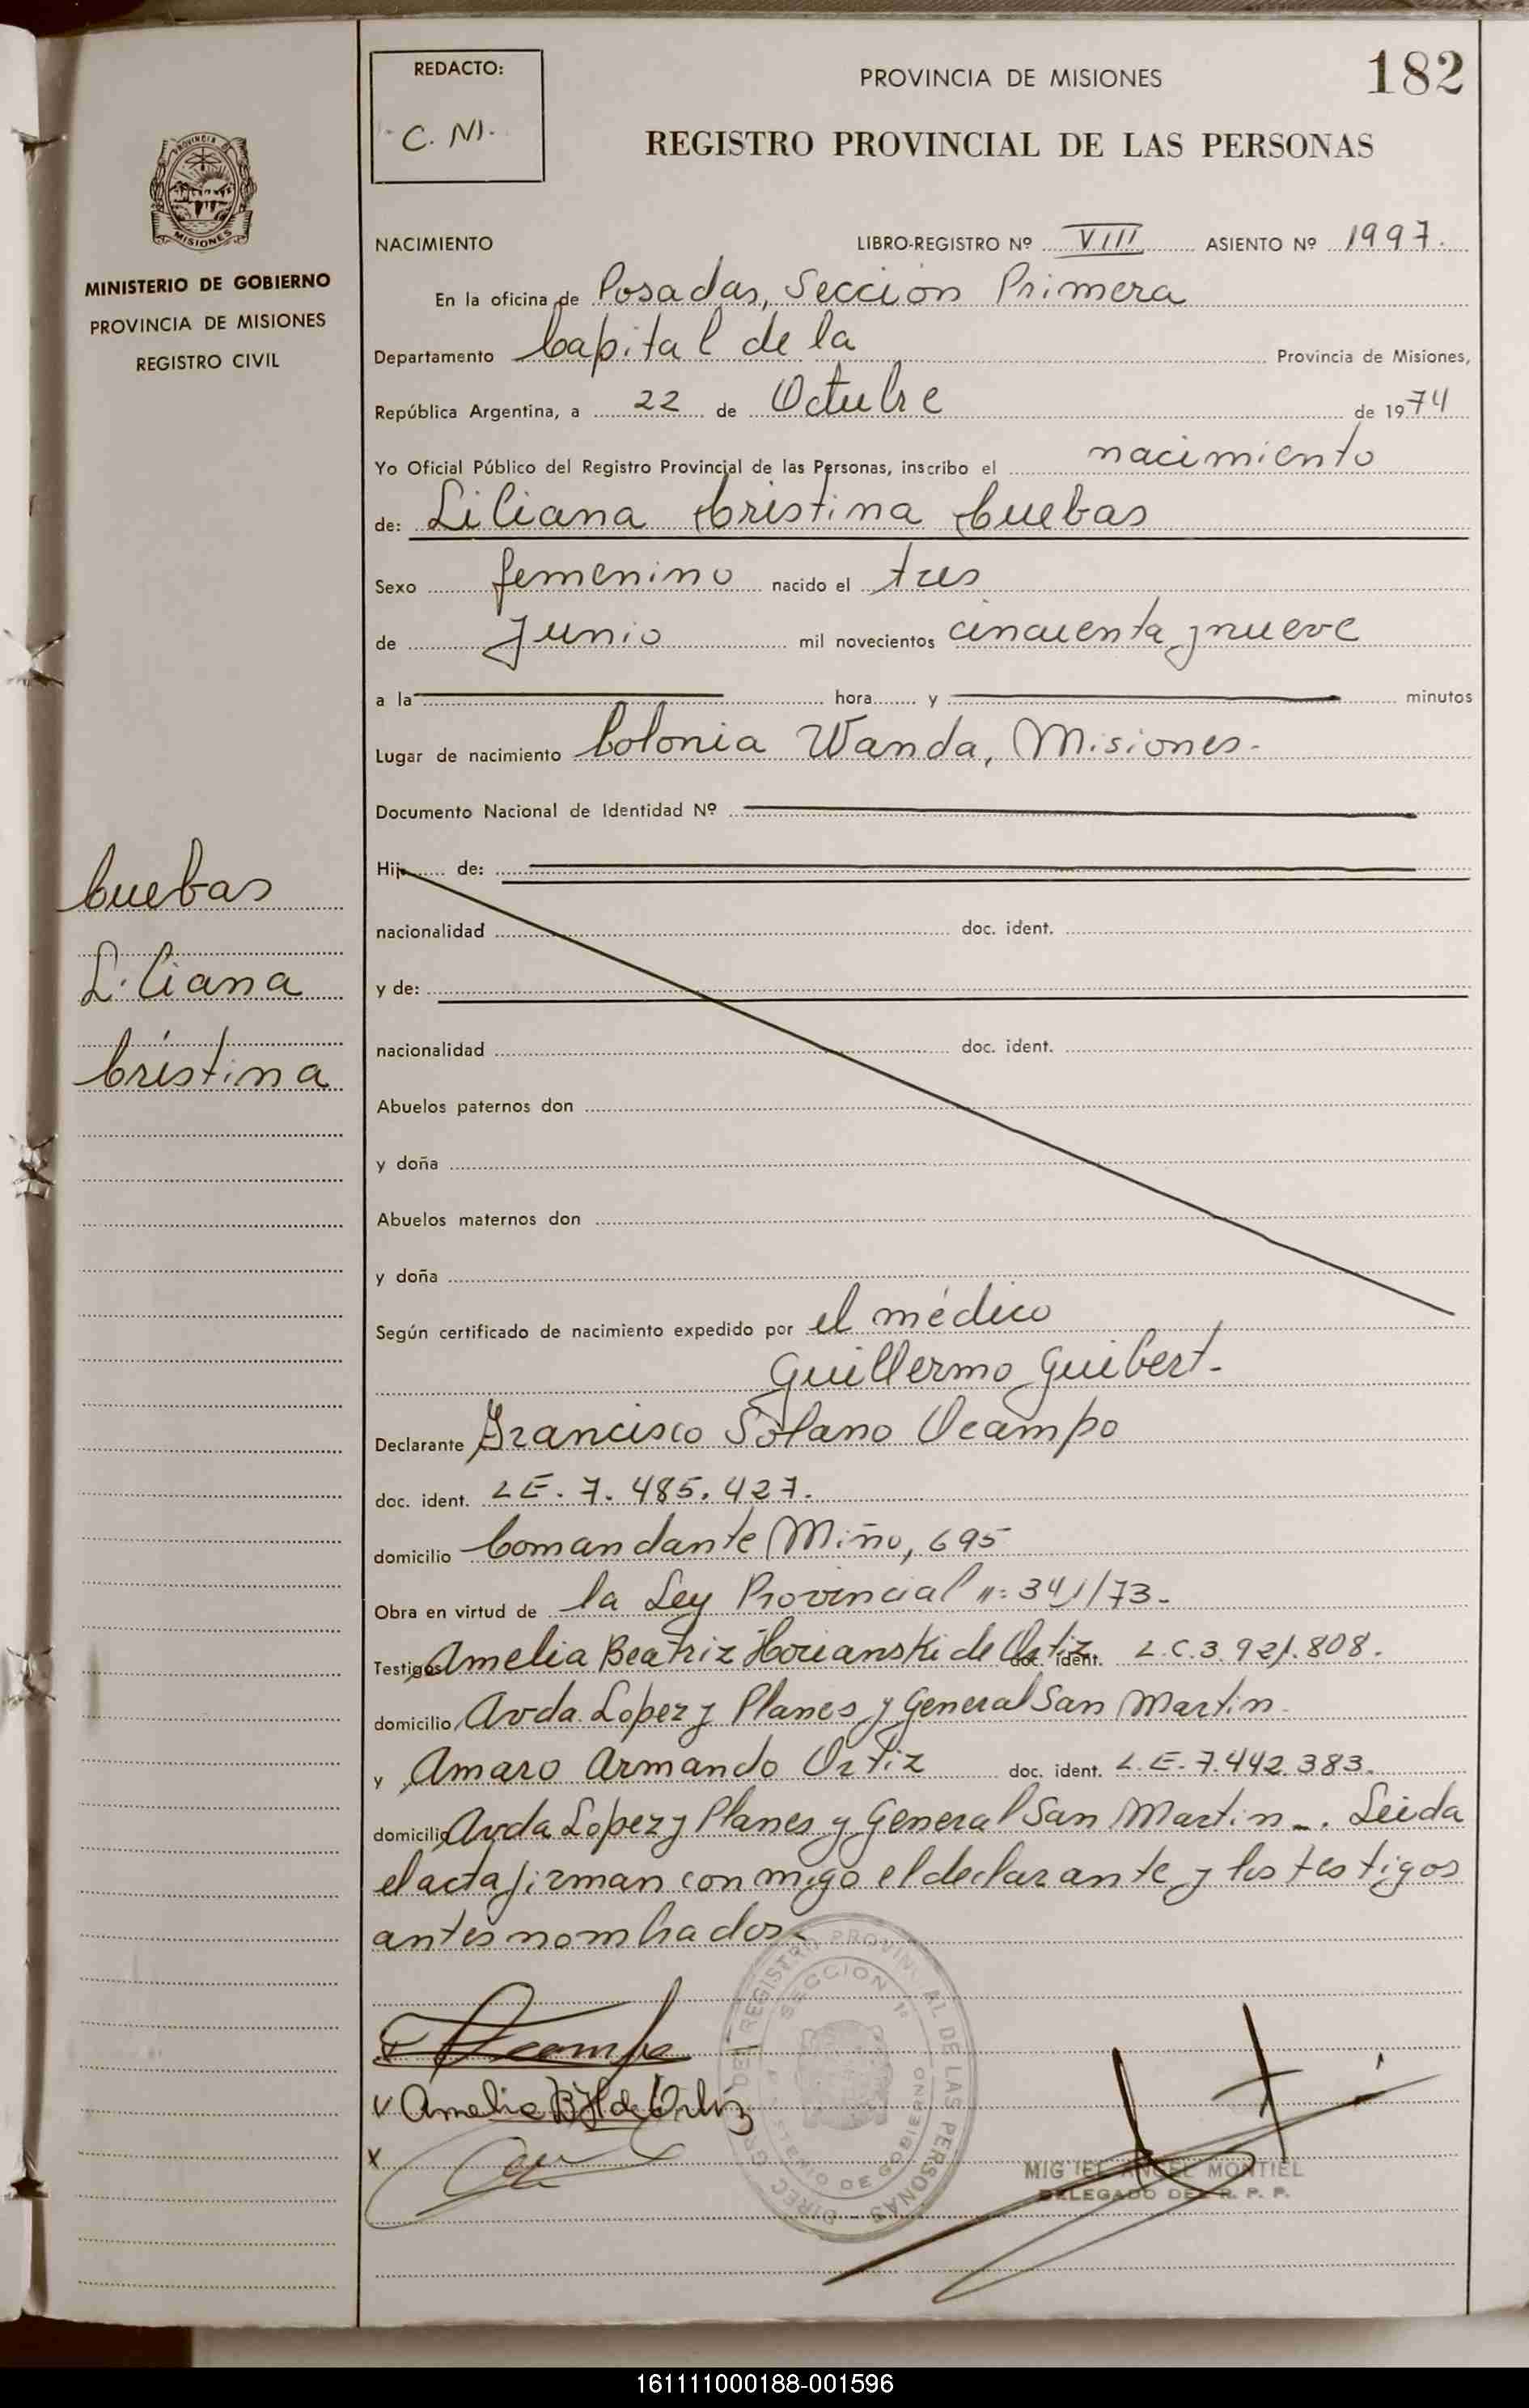 REDACTO:
C. N.
PROVINCIA DE MISIONES
182
REGISTRO PROVINCIAL DE LAS PERSONAS
MISIONES
MINISTERIO DE GOBIERNO
PROVINCIA DE MISIONES
REGISTRO CIVIL
NACIMIENTO LIBRO-REGISTRO Nº VIII ASIENTO Nº 1997.
En la oficina de Posadas, Sección Primera
Departamento Capital de la Provincia de Misiones,
República Argentina, a 22 de Octubre de 1974
Yo Oficial Público del Registro Provincial de las Personas, inscribo el nacimiento
de: Liliana Cristina Cuebas
Sexo femenino nacido el tres
de Junio mil novecientos cincuenta y nueve
a la hora y minutos
Lugar de nacimiento Colonia Wanda, Misiones.-
Documento Nacional de Identidad Nº
Hij de:
nacionalidad doc. ident.
y de:
nacionalidad doc. ident.
Abuelos paternos don
y doña
Abuelos maternos don
y doña
Cuebas
Liliana
Cristina
Según certificado de nacimiento expedido por el médico
Guillermo Guibert.-
Declarante Francisco Solano Ocampo
doc. ident. LE. 7. 485. 427.
domicilio Comandante Miño, 695
Obra en virtud de la Ley Provincial n: 341/73.-
Testigos Amelia Beatriz Horianski de Ortiz doc. ident. L.C. 3.921.808.
domicilio Avda. Lopez y Planes y General San Martin
y Amaro Armando Ortiz doc. ident. L.E. 7.442.383.
domicilio Avda Lopez y Planes y General San Martin -. Leida
el acta firman conmigo el declarante y los testigos
antes nombrados.-
Ocampo
v Amelia B H de Ortiz
x
DIREC. GRAL DEL REGISTRO PROVINCIAL DE LAS PERSONAS
SECCION 1ª
MINISTERIO DE GOBIERNO
MIGUEL ANGEL MONTIEL
DELEGADO DEL R. P. P.
161111000188-001596